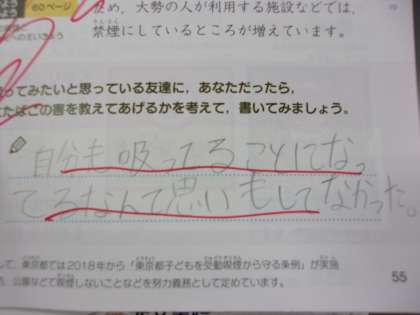 60ページ
め、大勢の人が利用する施設などでは、
禁煙にしているところが増えています。
ってみたいと思っている友達に、あなただったら、
たばこの害を教えてあげるかを考えて、書いてみましょう。
自分も吸ってることになっ
てるなんて思いもしてなかった。
して、東京都では2018年から「東京都子どもを受動喫煙から守る条例」が実施
、公園などで喫煙しないことなどを努力義務として定めています。
55